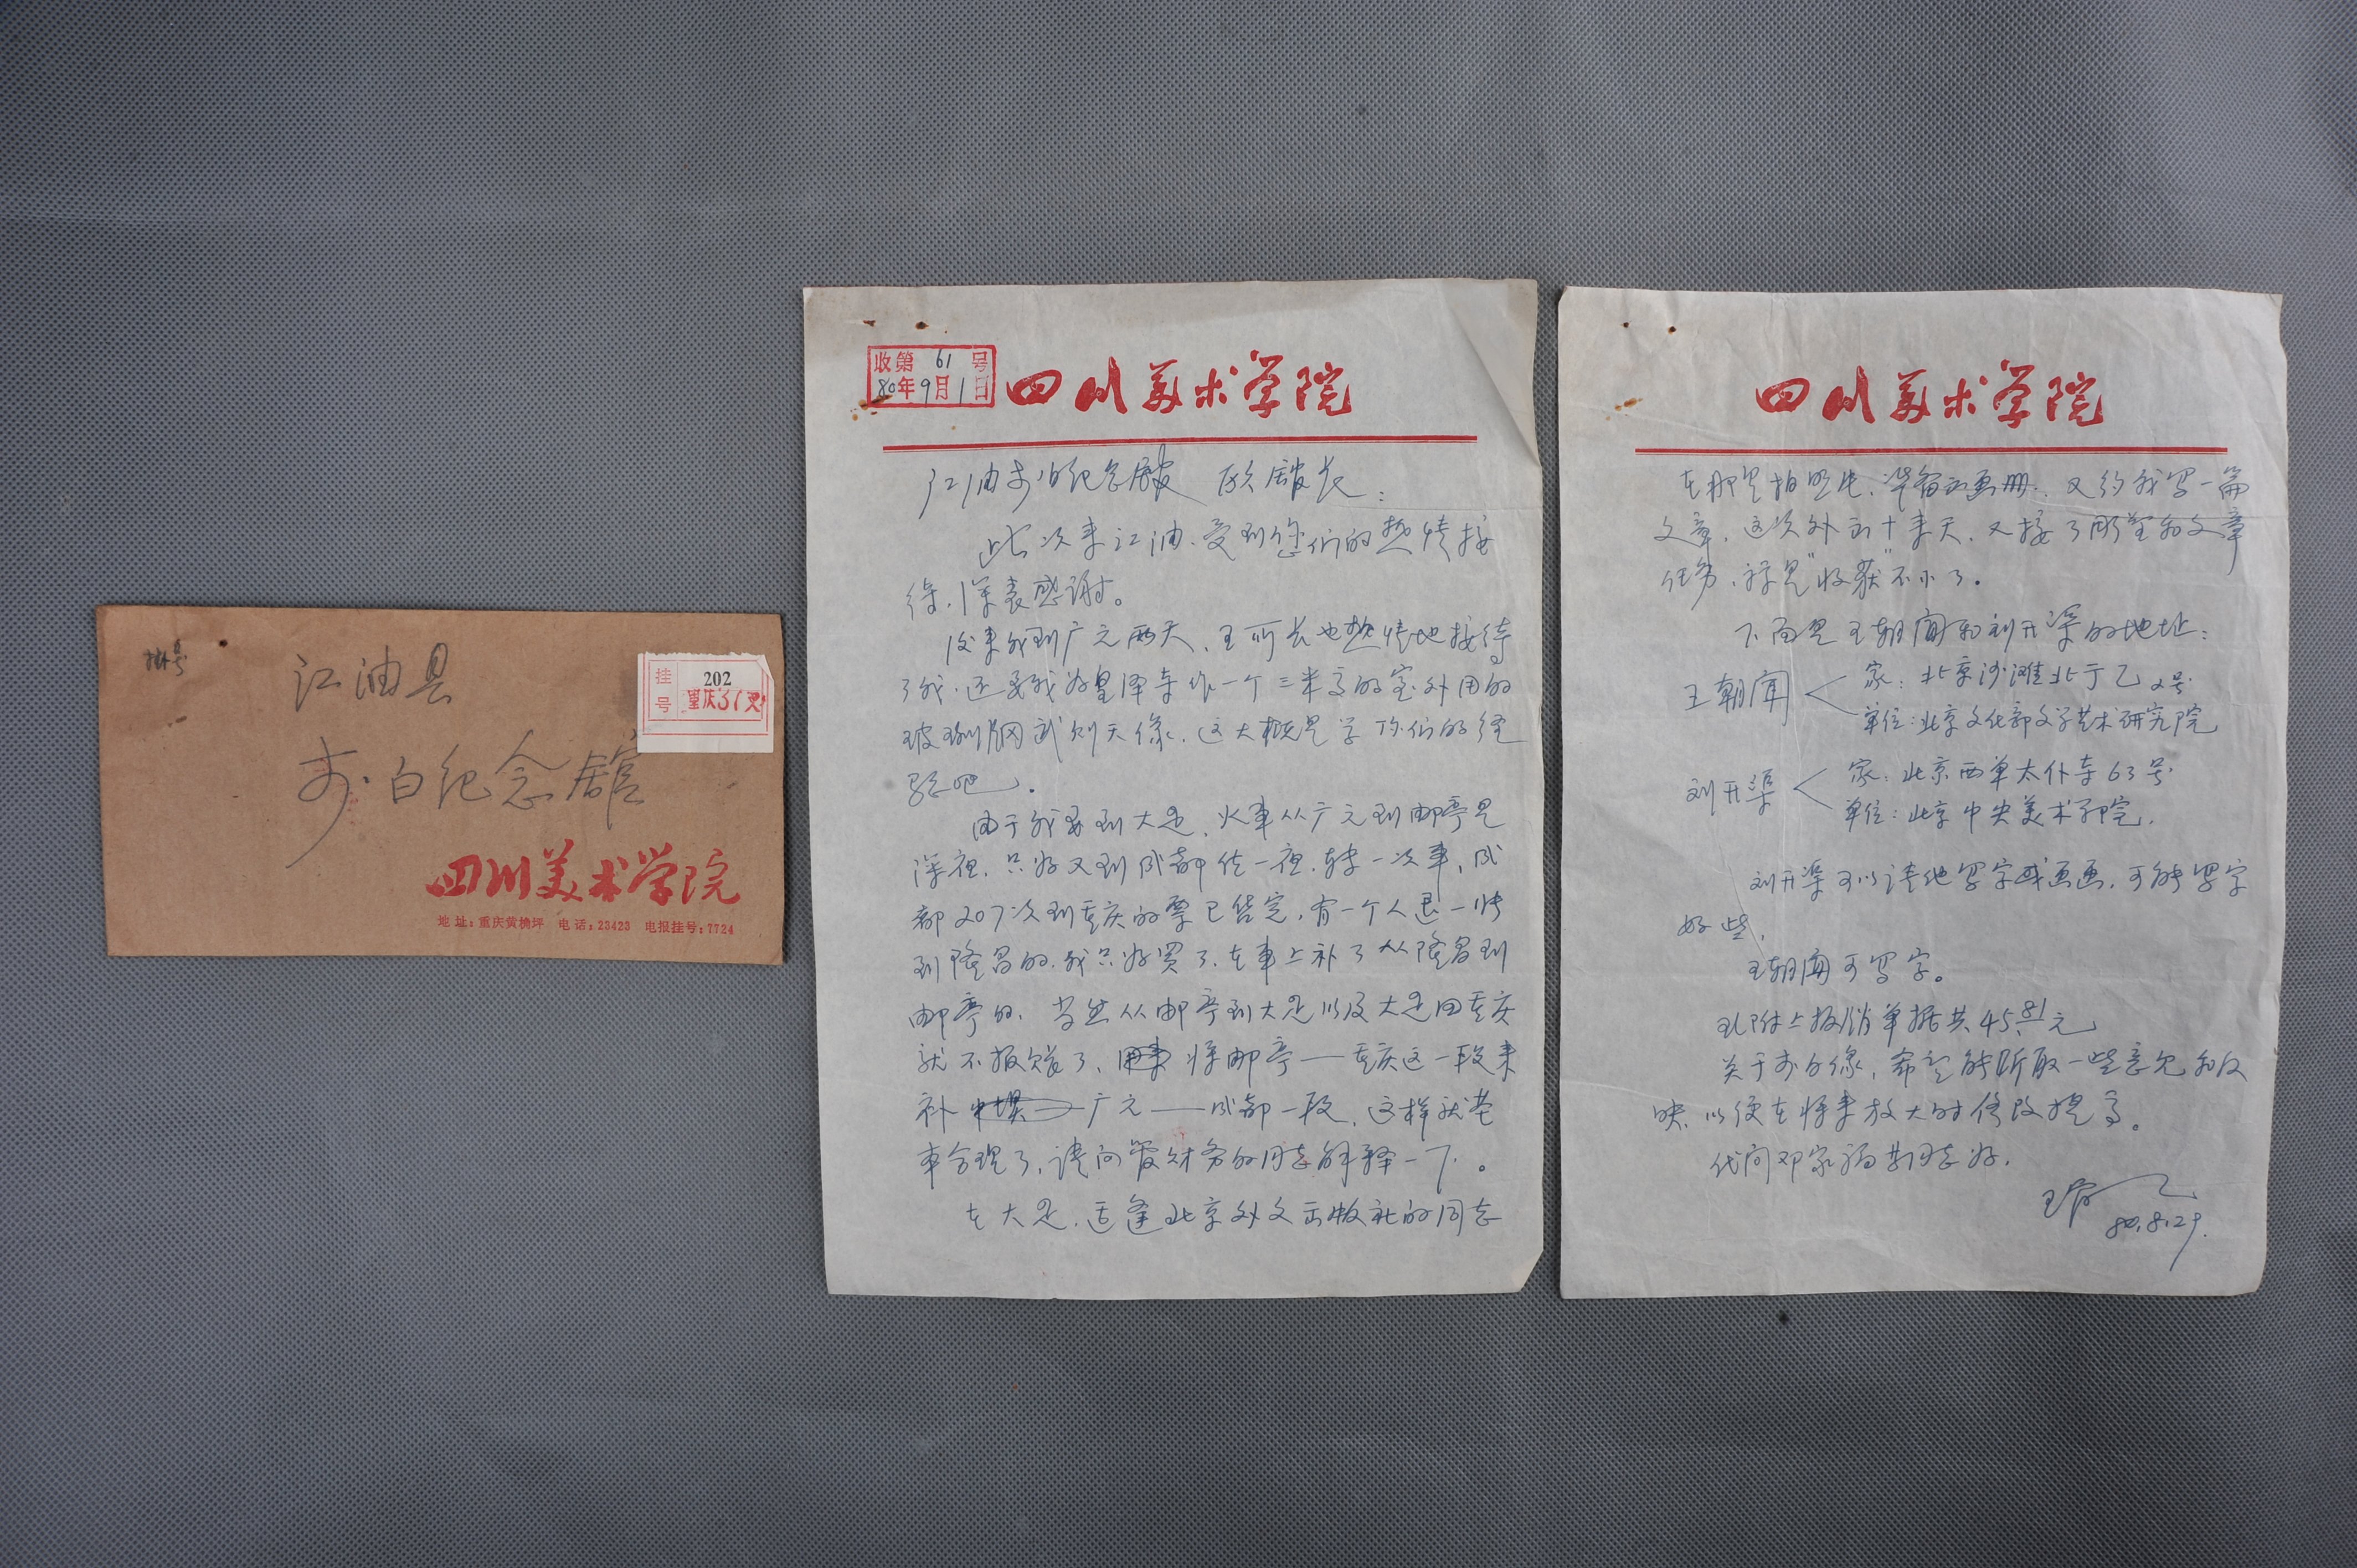 挂号
江油县
李白纪念馆
挂号
202
重庆37支
四川美术学院
地址:重庆黄桷坪 电话:23423 电报挂号:7724
收第61号
80年9月1日
四川美术学院
江油李白纪念馆 欧馆长:
此次来江油、受到您们的热情接
待,深表感谢。
后来我到广元两天、王所长也热情地接待
了我,还要我为皇泽寺作一个三米高的室外用的
玻璃钢武则天像,这大概是学你们的经
验吧。
由于我要到大足、火车从广元到邮亭是
深夜,只好又到成都住一夜,转一次车,成
都207次到重庆的票已售完,有一个人退一张
到隆昌的,我只好买了,在车上补了从隆昌到
邮亭的,当然从邮亭到大足以及大足回重庆
就不报账了、将邮亭——重庆这一段来
补 广元——成都一段,这样就基
本合理了,请向管财务的同志解释一下。
在大足,适逢北京外文出版社的同志
四川美术学院
在那里拍照片,准备出画册,又约我写一篇
文章,这次外出十来天,又接了雕塑和文章
任务,算是"收获"不小了。
下面是王朝闻和刘开渠的地址:
王朝闻
家:北京沙滩北街乙2号
单位:北京文化部文学艺术研究院
刘开渠
家:北京西单太仆寺63号
单位:北京中央美术学院.
刘开渠可以请他写字或画画,可能写字
好些,
王朝闻可写字。
现附上报销单据共45.81元
关于李白像,希望能听取一些意见和反
映,以便在将来放大时修改提高。
代问邓家福等同志好,
王官乙
80.8.29.